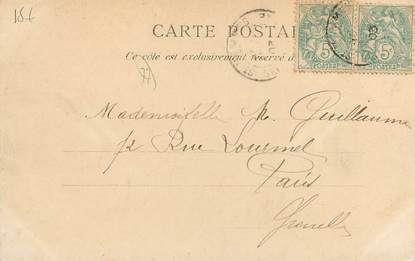 15€
CARTE POSTA
Ce côté est exclusivement réservé à
77
5 5
Mademoiselle M. Guillaume
12 Rue Lourmel
Paris
Grenelle